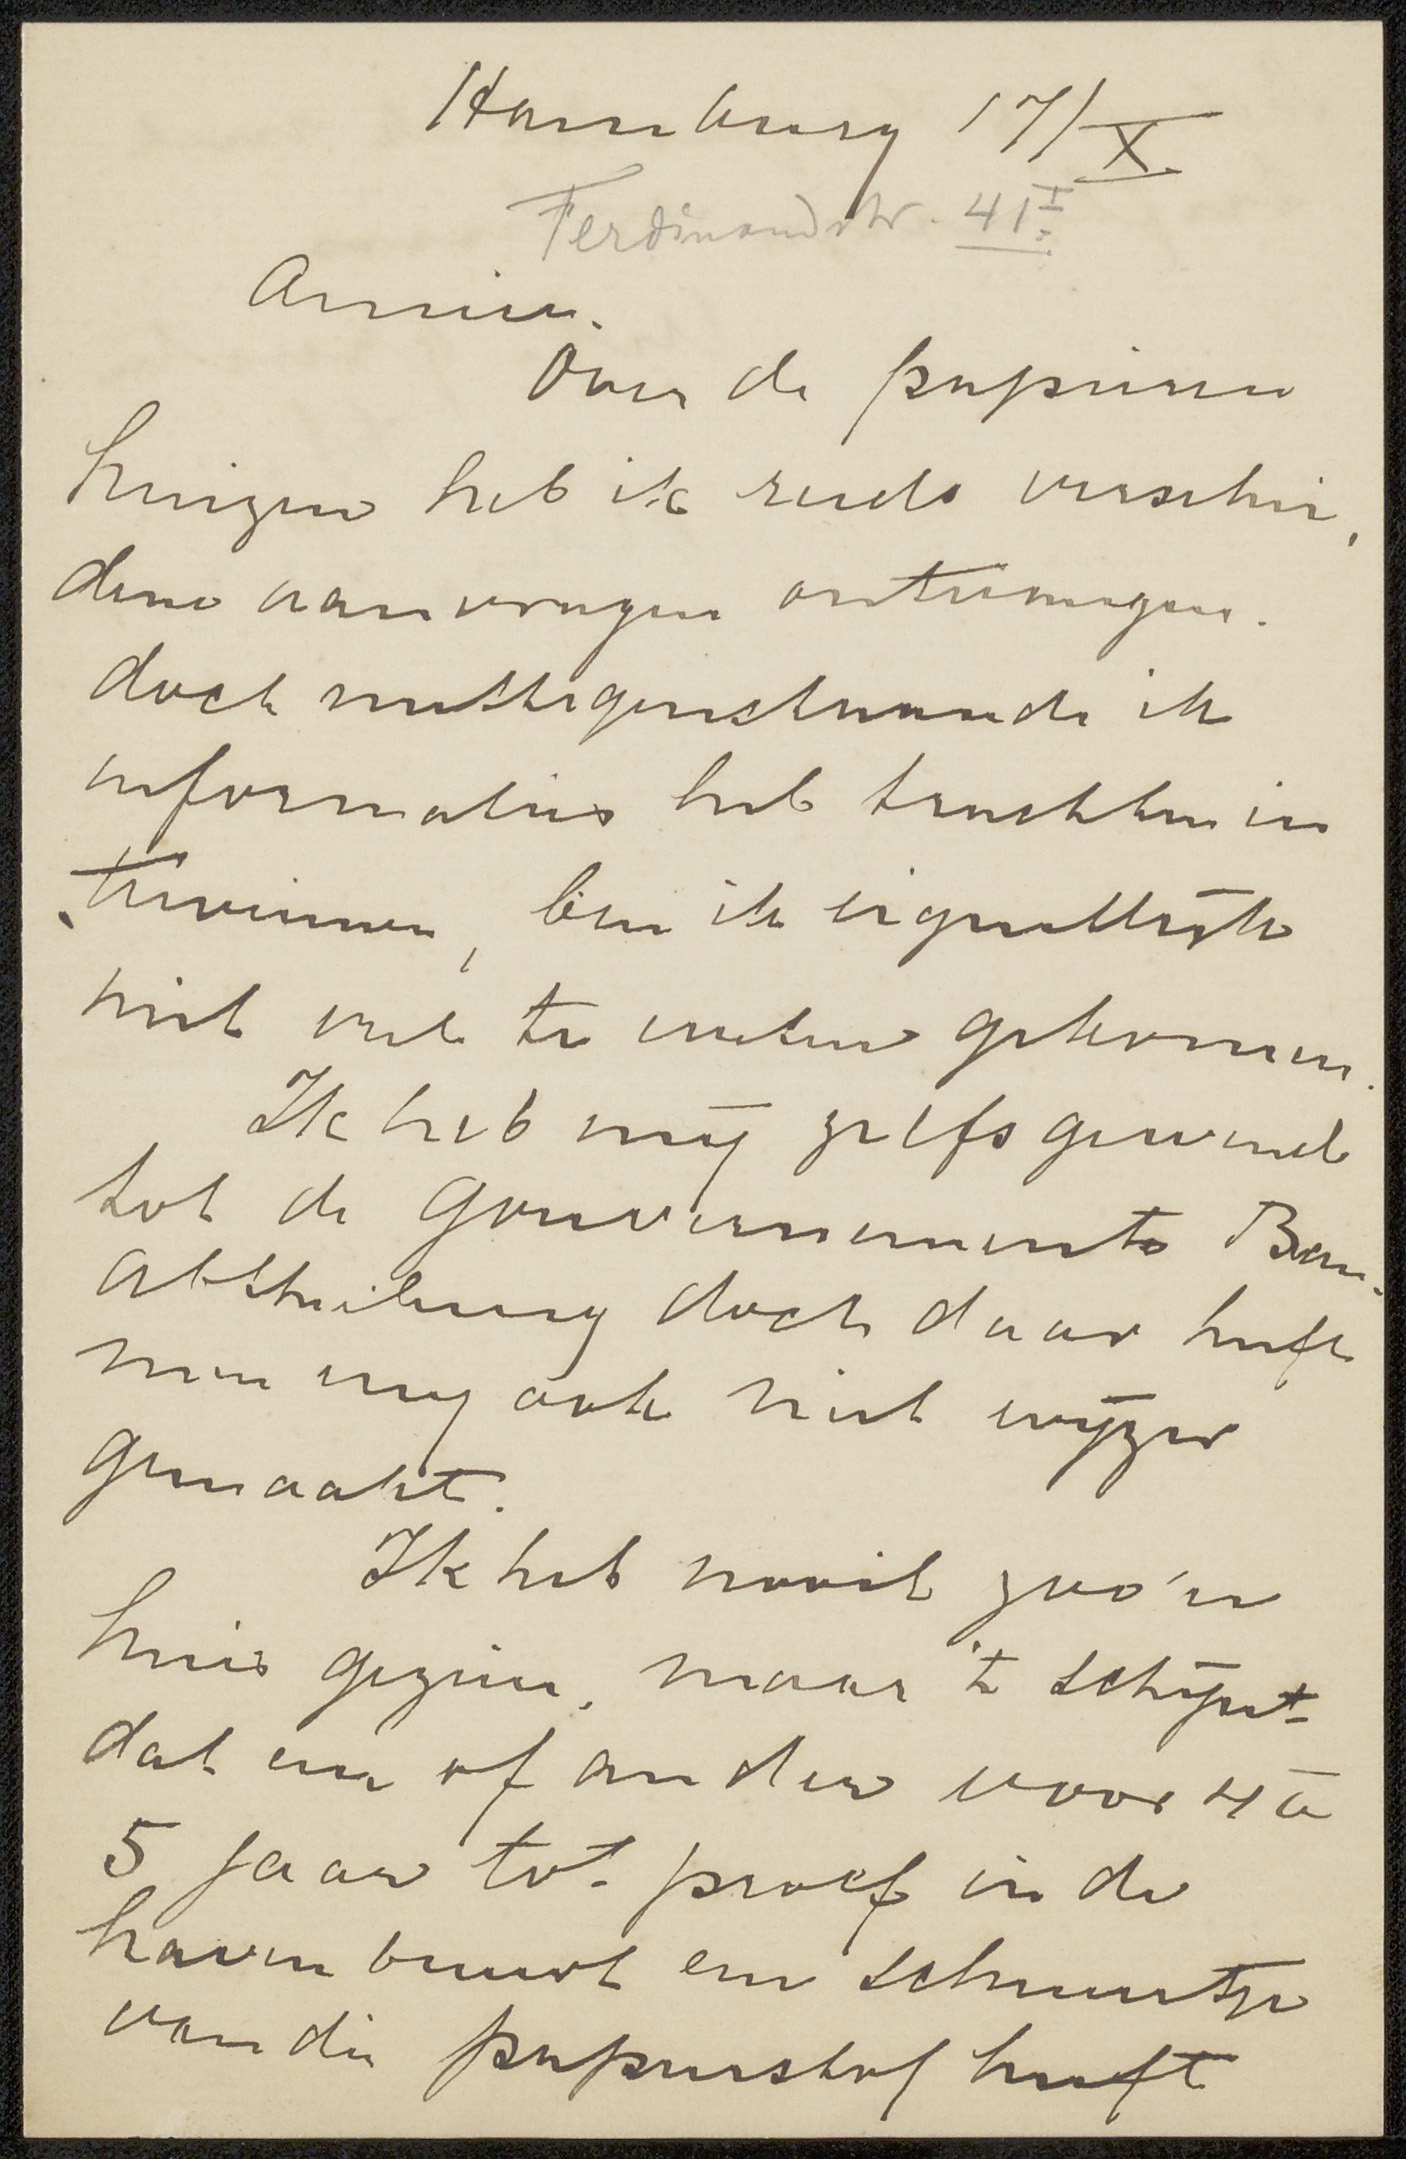 Hamburg 17/X.
Ferdinandstr. 41 I.
Amice.
Over de papieren
huizen heb ik reeds verschei,
dene aanvragen ontvangen.
doch niettegenstaande ik
informaties heb trachten in
te winnen, ben ik eigentlijk
niet veel te weten gekomen.
Ik heb mij zelfs gewend
tot de Gouvernements Bau-
abtheilung doch daar heeft
men mij ook niet wijzer
gemaakt.
Ik heb nooit zoo'n
huis gezien, maar 't schijnt
dat een of ander voor 4 à
5 jaar tot proef in de
haven buurt een schuurtje
van die papierstof heeft